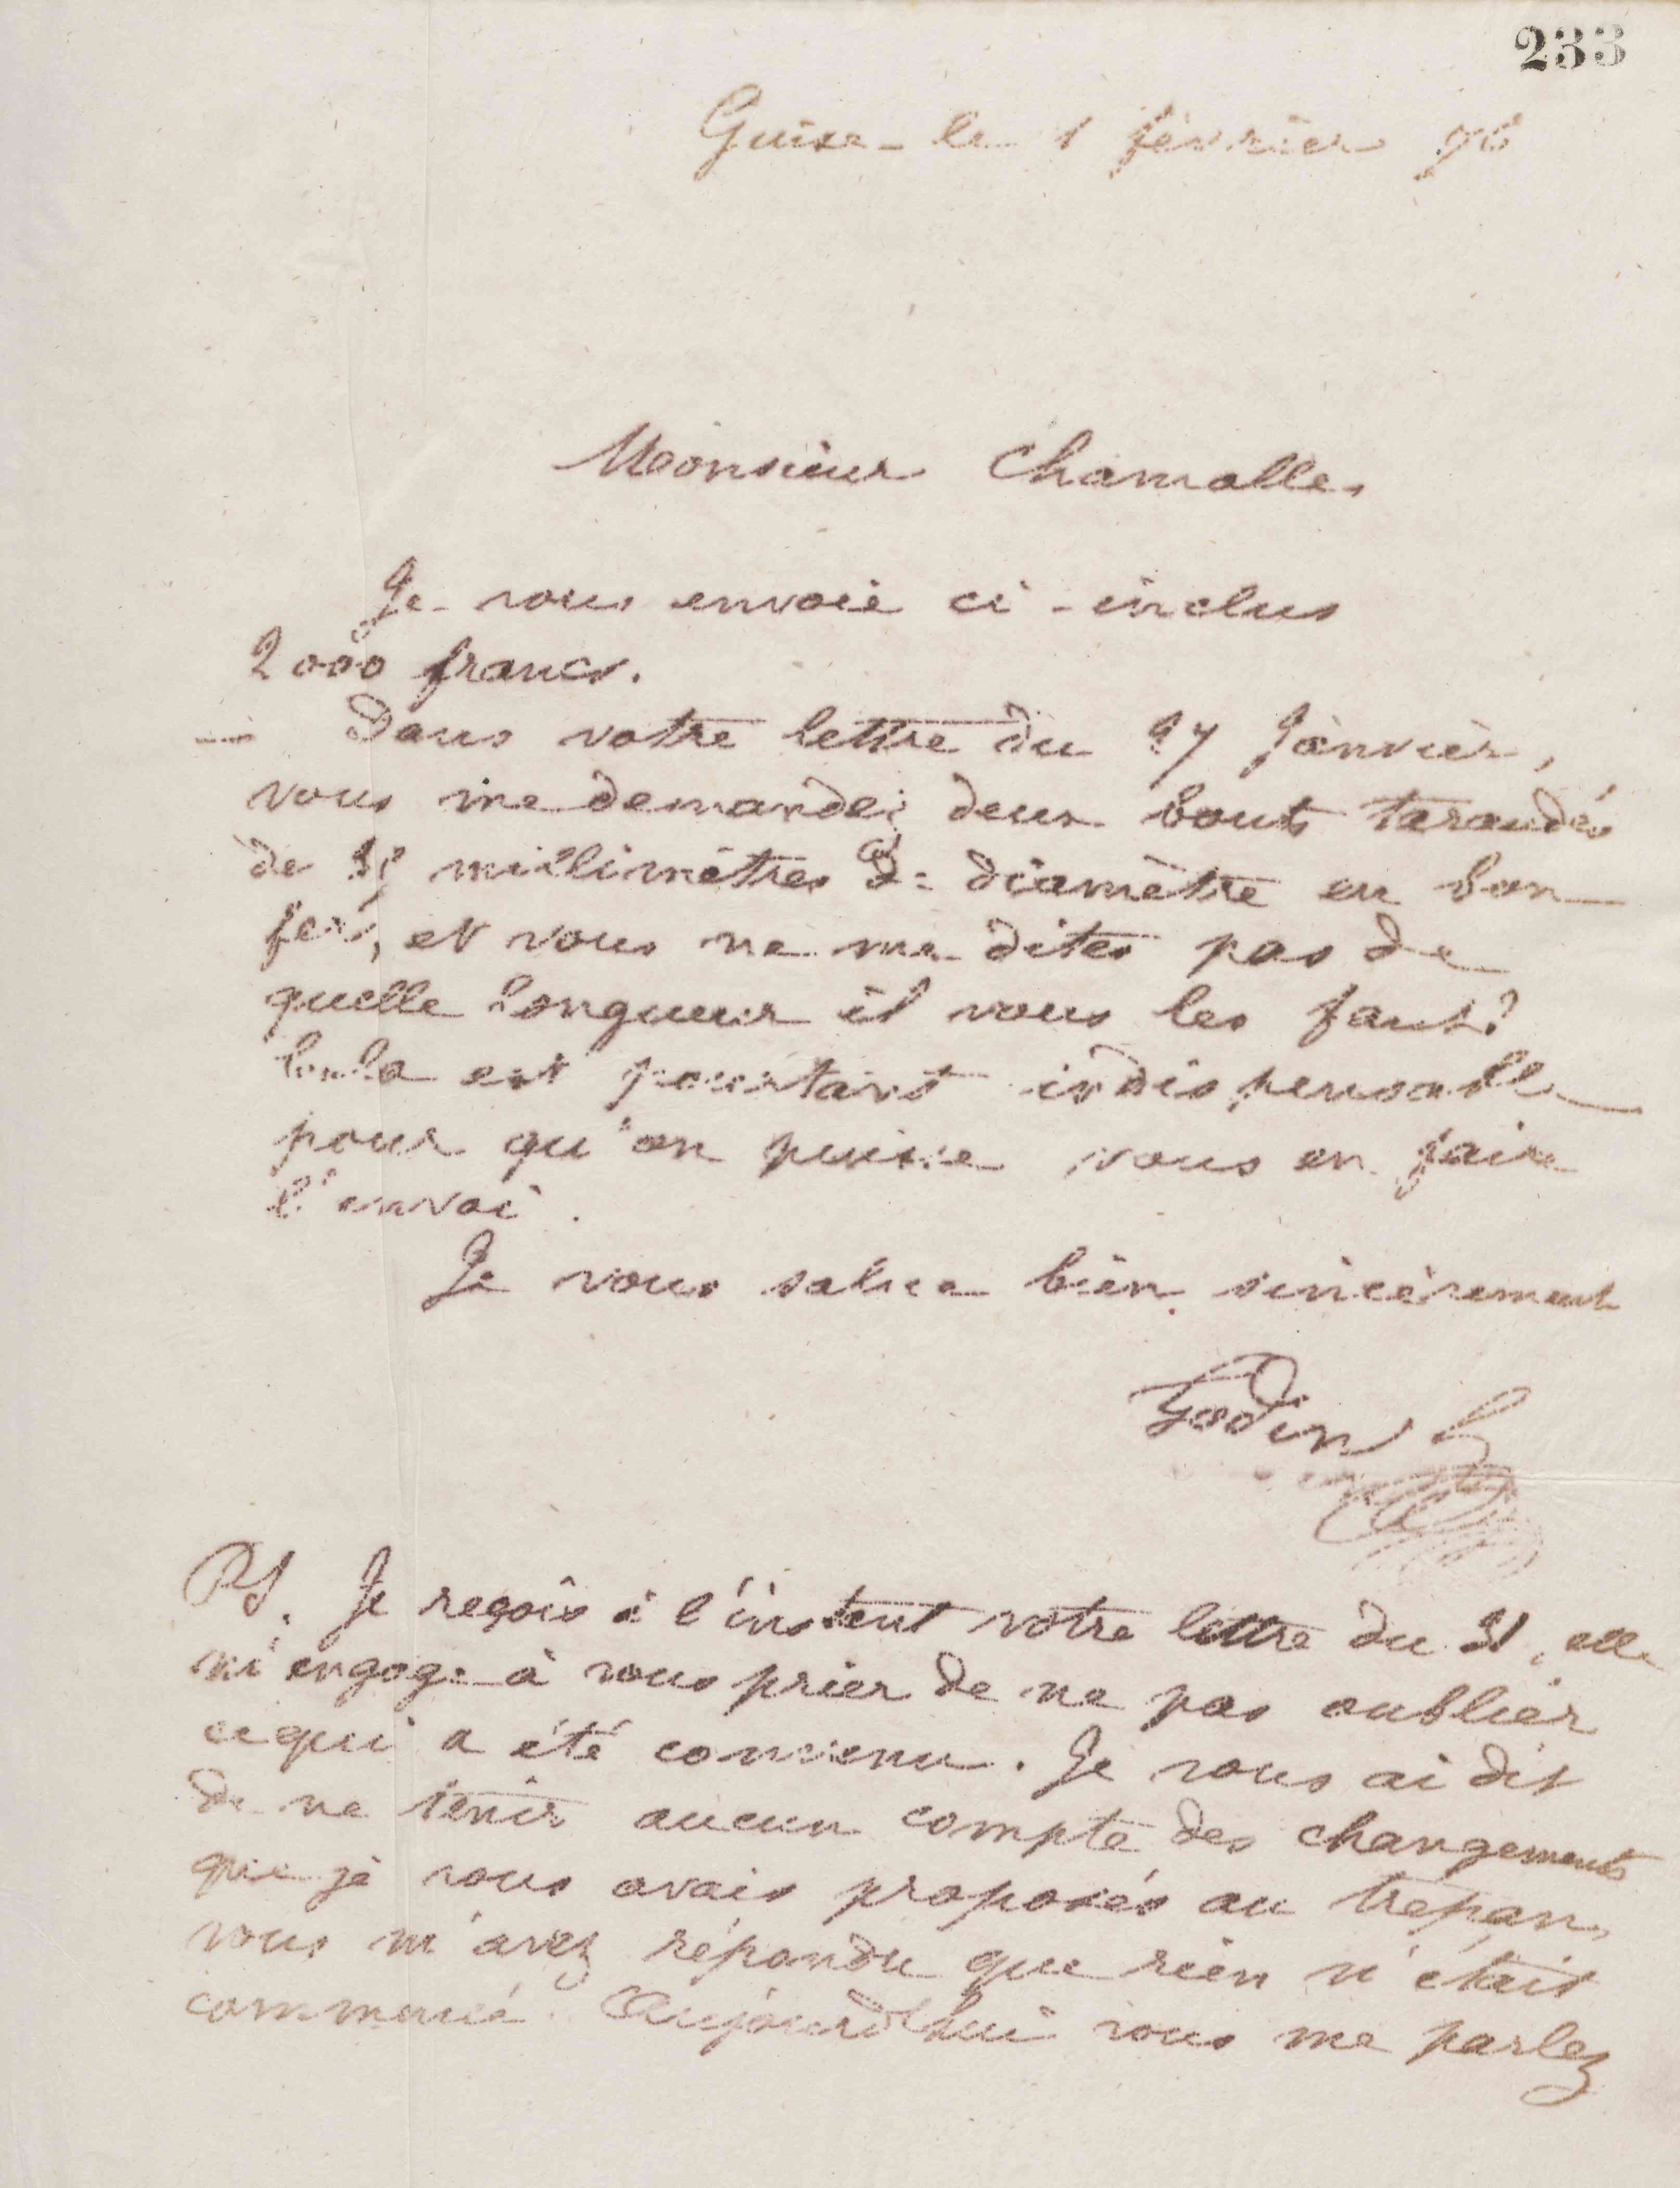 233
Guise le 1 février 76
Monsieur Chamolle
Je vous envoie ci-inclus
2000 francs.
Dans votre lettre du 27 Janvier,
vous me demandez deux bouts taraudés
de millimètres de diamètre en bon
fer, et vous ne me dites pas de
quelle longueur il vous les faut?
Cela est pourtant indispensable
pour qu'on puisse vous en faire
l'envoi.
Je vous salue bien sincèrement
Godin
PS. Je reçois à l'instant votre lettre du 31, elle
m'engage à vous prier de ne pas oublier
ce qui a été convenu. Je vous ai dit
de ne tenir aucun compte des changements
que je vous avais proposés au trépan,
vous m'avez répondu que rien n'était
commencé. Aujourd'hui vous me parlez